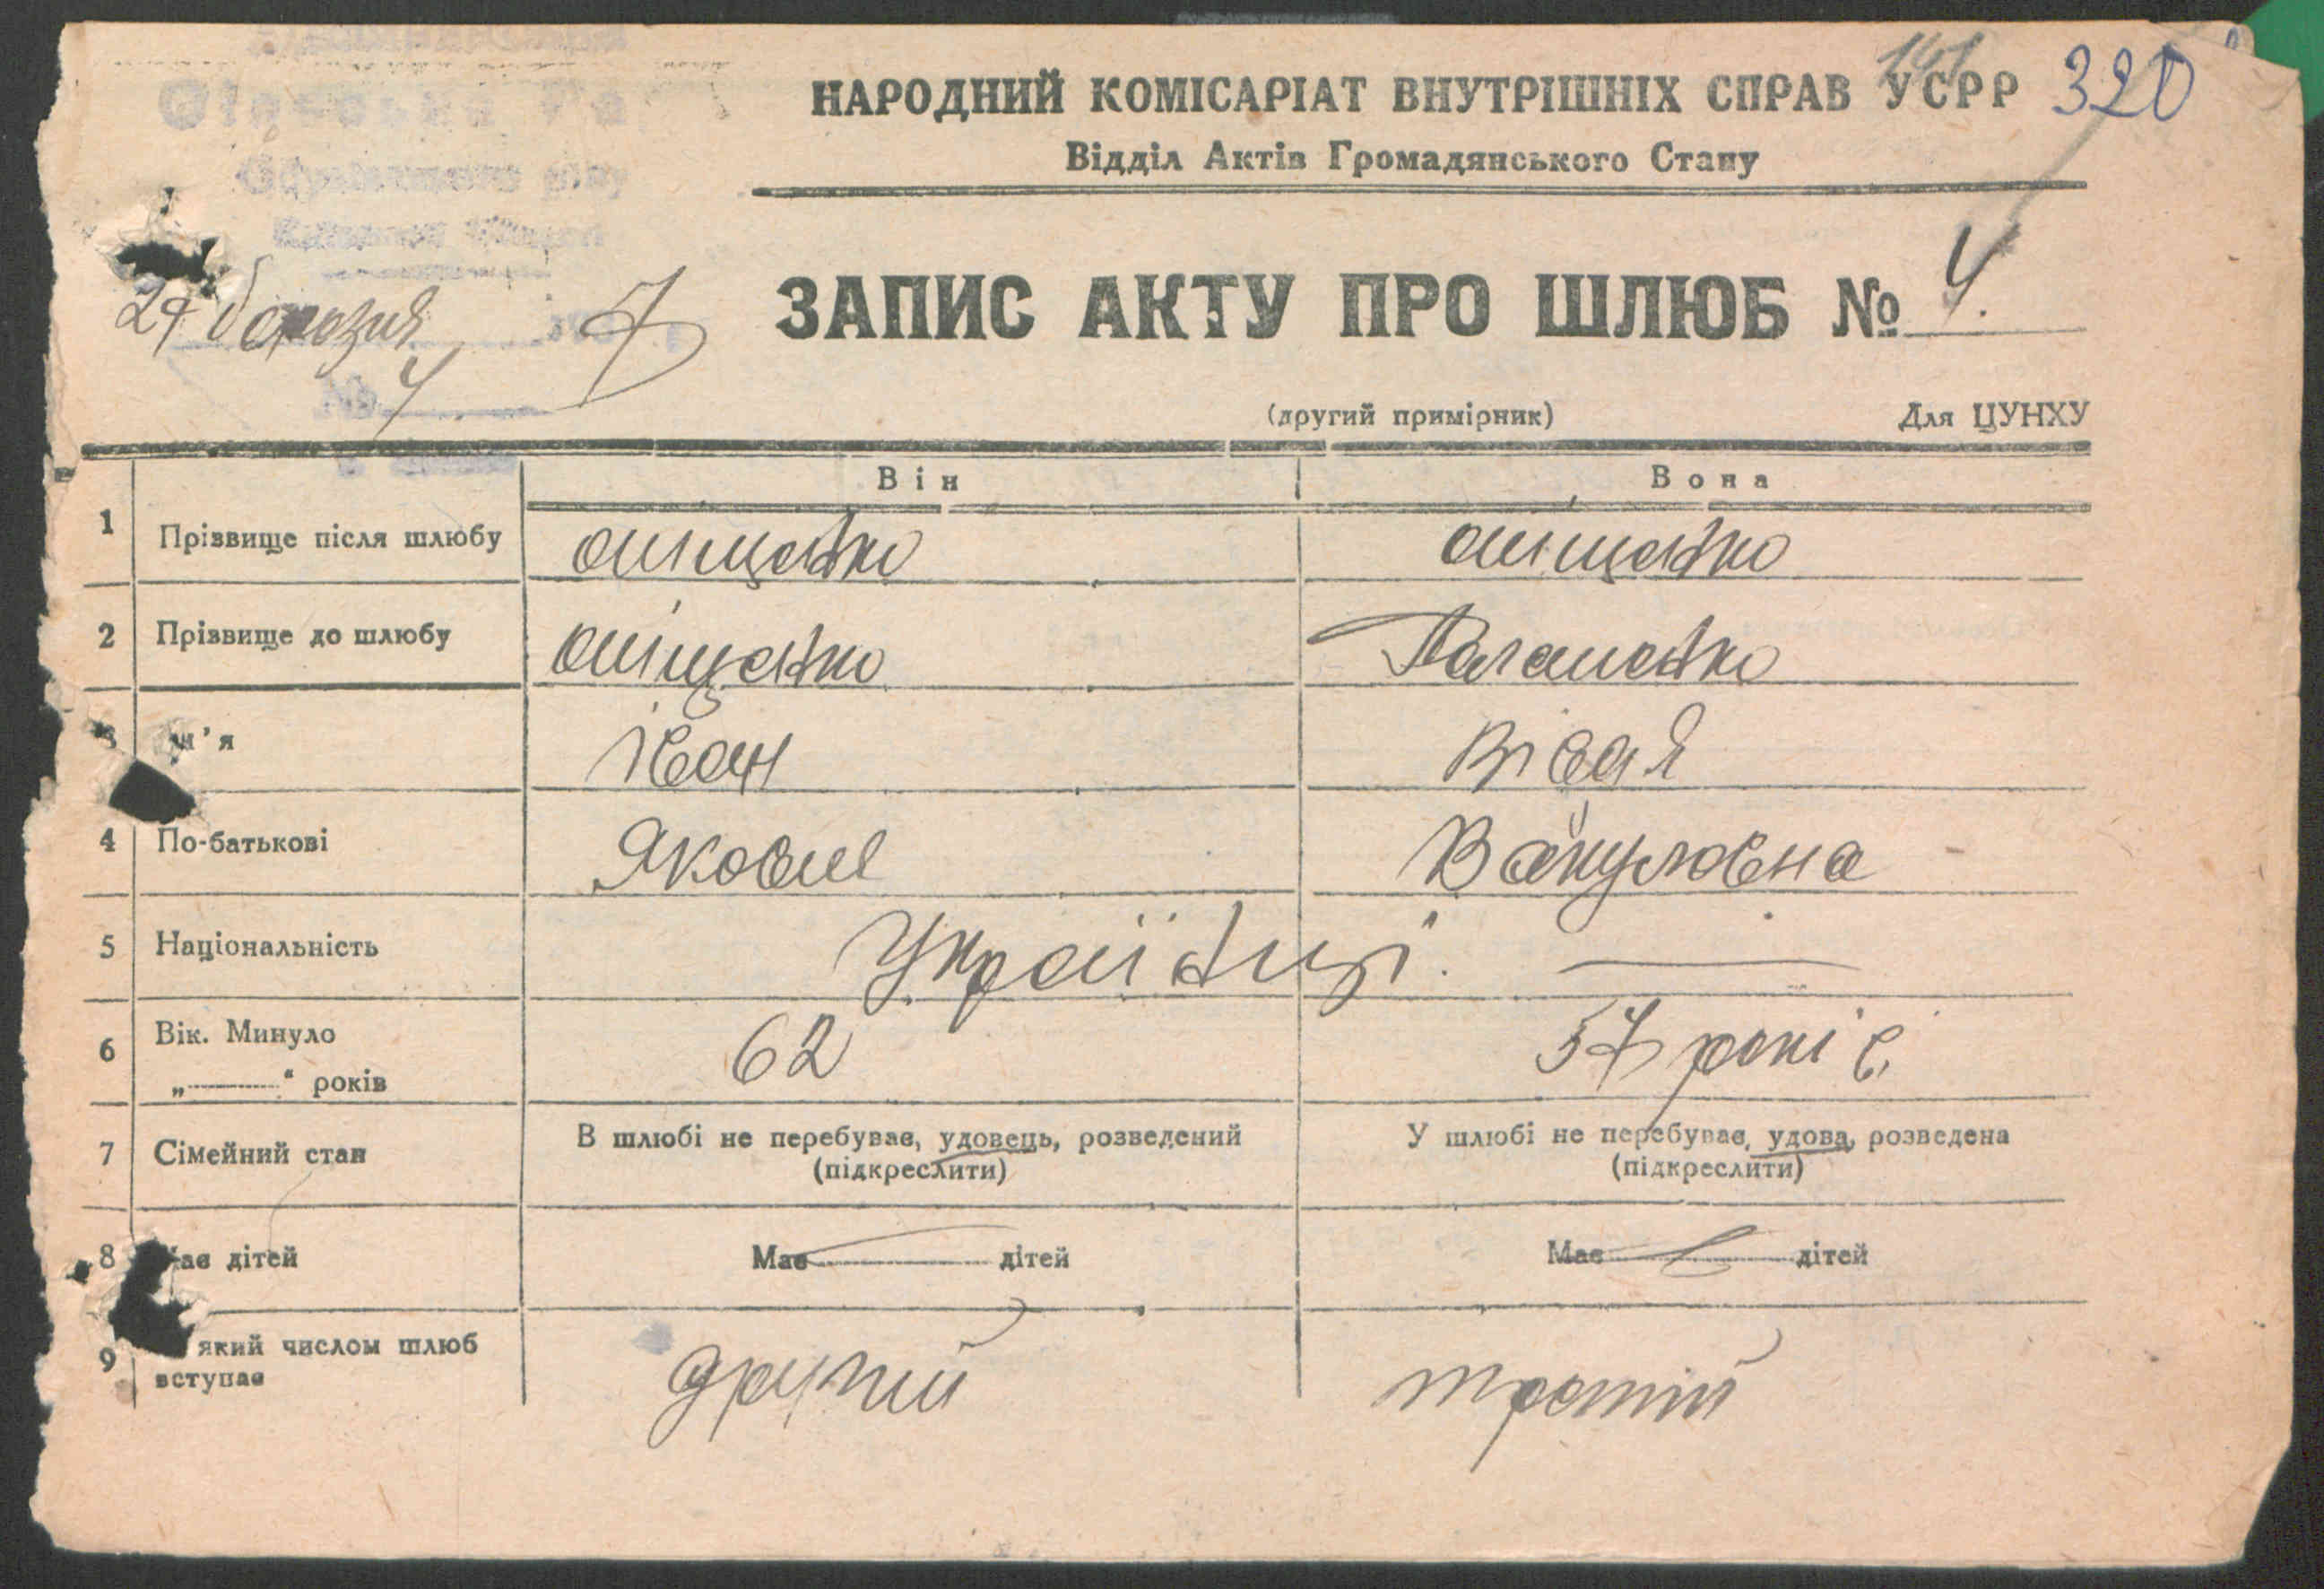 141
320
НАРОДНИЙ КОМІСАРІАТ ВНУТРІШНІХ СПРАВ УСРР
Відділ Актів Громадянського Стану
ЗАПИС АКТУ ПРО ШЛЮБ № 4.
березня 7
№ 4
(другий примірник) Для ЦУНХУ
Він Вона
1 Прізвище після шлюбу Оніщенко Оніщенко
2 Прізвище до шлюбу Оніщенко
3 м'я Іван
4 По-батькові Якович Вакуловна
5 Національність Українці.
6 Вік. Минуло 62 57 років
„ “ років
7 Сімейний стан В шлюбі не перебував, удовець, розведений У шлюбі не перебувае, удова, розведена
(підкреслити) (підкреслити)
8 ає дітей Має дітей Має дітей
9 який числом шлюб вступає другий третій